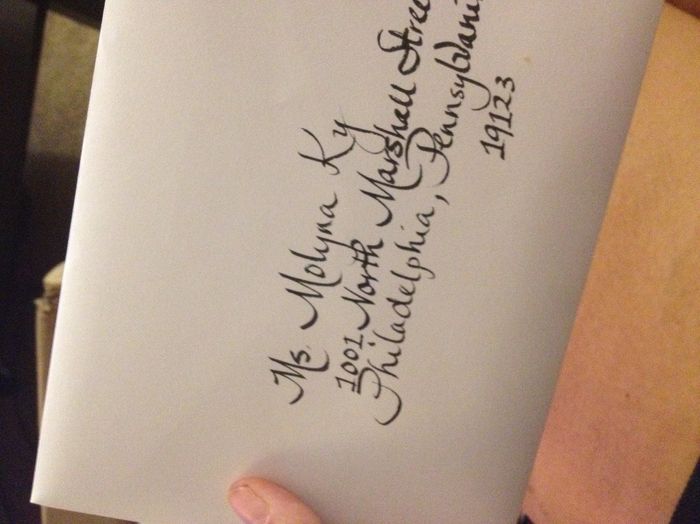 Ms. Molyna Ky
1001 North Marshall Stree
Philadelphia, Pennsylvani
19123